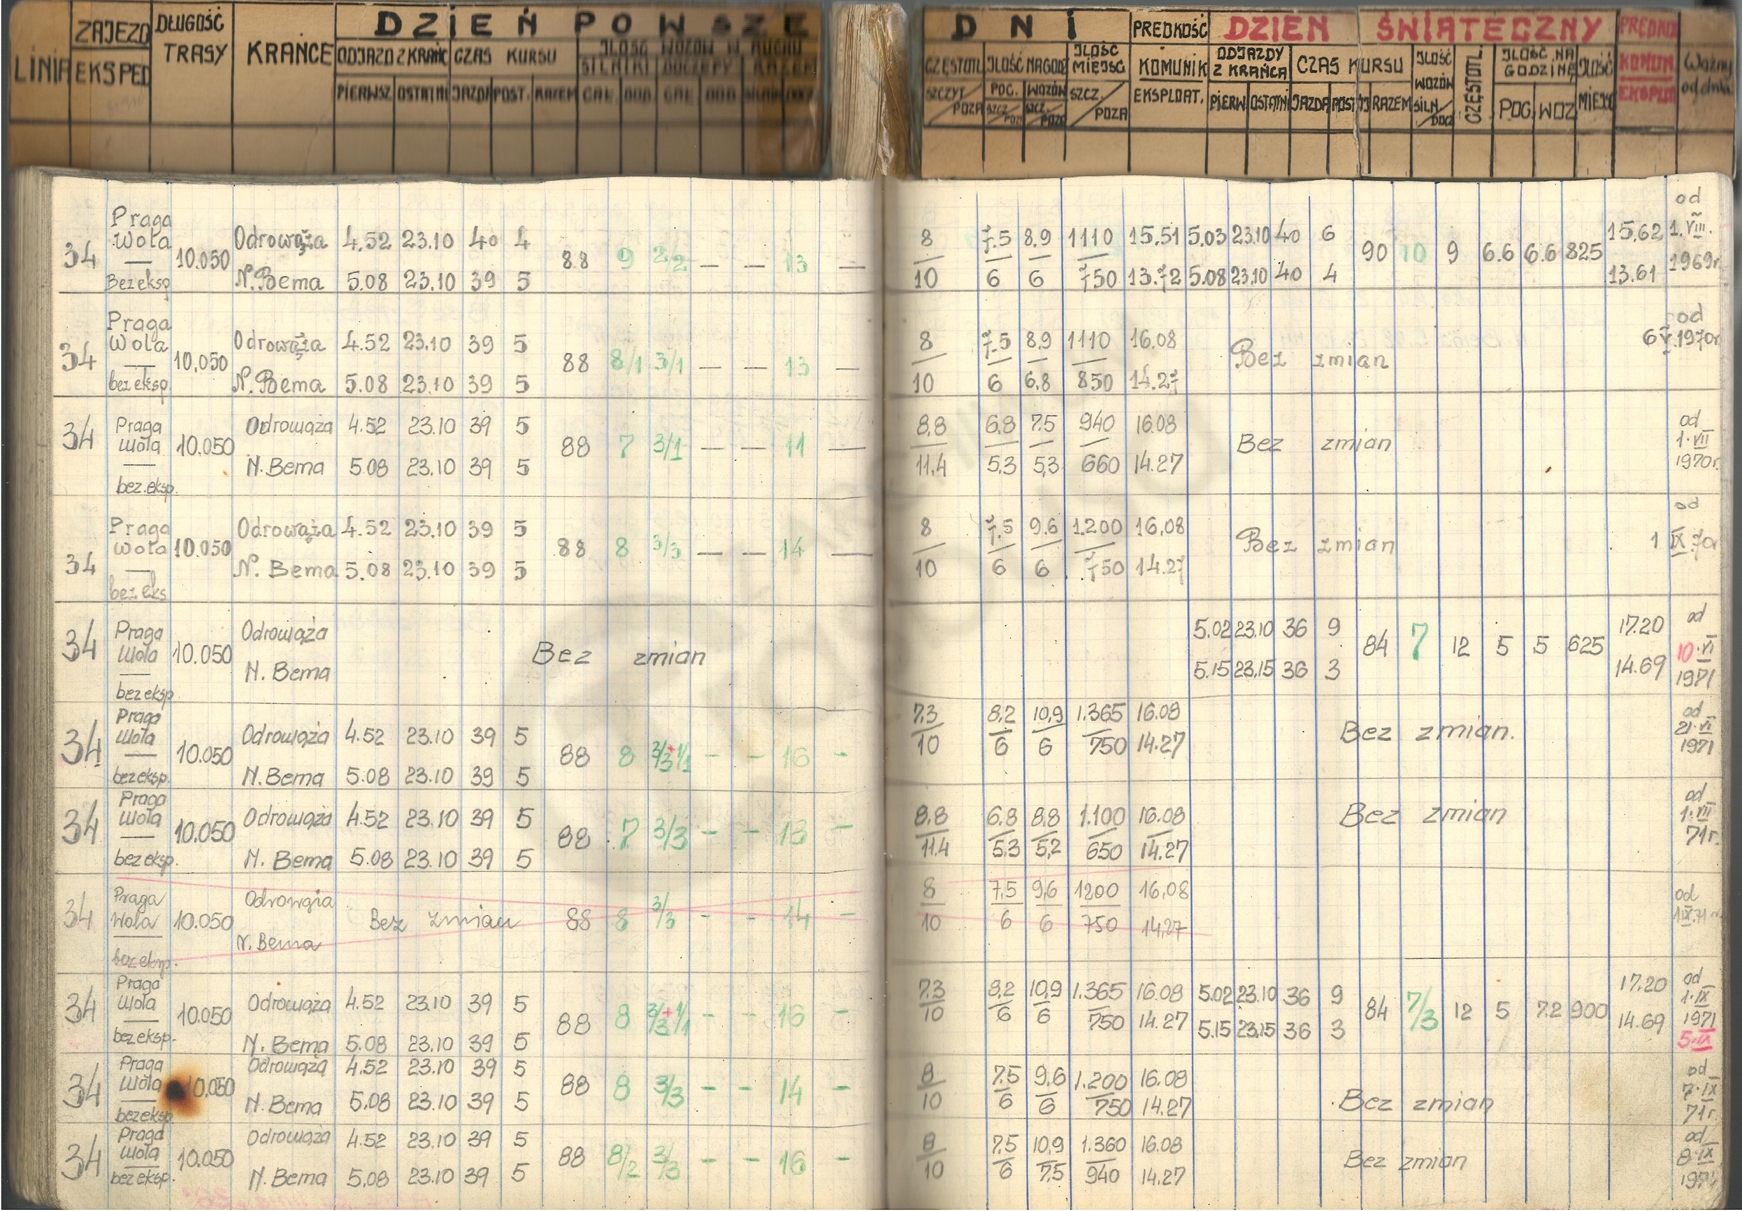 LINIA
ZAJEZD
EKSPED
DŁUGOŚĆ
TRASY
KRAŃCE
DZIEŃ POWSZE
ODJAZD Z KRAŃC
CZAS KURSU
ILOŚĆ WOZÓW W RUCHU
PIERWSZ. OSTATNI JAZDA POST. RAZEM
DNI
CZĘSTOTL
ILOŚĆ NA GODZ
ILOŚĆ
MIEJSC
PRĘDKOŚĆ
KOMUNIK
EKSPLOAT.
DZIEŃ ŚWIĄTECZNY
ODJAZDY
Z KRAŃCA
CZAS KURSU
PIERW OSTATNI JAZDA POST RAZEM
ILOŚĆ
WOZÓW
SILN
DOCZ
CZĘSTOTL.
ILOŚĆ NA
GODZINĘ
POG. WOZ
Ważny
od dnia
34 Praga Wola — Bez eksp 10.050
Odrowąża 4.52 23.10 40 4
N. Bema 5.08 23.10 39 5
88 9 2/2 — — 13 —
8/10 7.5/6 8,9/6 1110/750 15,51 13.72
5.03 23.10 40 6
5.08 23.10 40 4
90 10 9 6.6 6.6 825 15,62 13.61
od 1.VIII. 1969r
34 Praga Wola — bez eksp 10,050
Odrowąża 4.52 23.10 39 5
N. Bema 5.08 23.10 39 5
88 8/1 3/1 — — 13 —
8/10 7.5/6 8,9/6,8 1110/850 16.08 14.27
Bez zmian
od 6 V.1970r
34 Praga Wola — bez.eksp. 10.050
Odrowąża 4.52 23.10 39 5
N. Bema 5.08 23.10 39 5
88 7 3/1 — — 11 —
8,8/11,4 6,8/5,3 7,5/5,3 940/660 16.08 14.27
Bez zmian
od 1.VII 1970r.
34 Praga Wola — bez eks 10.050
Odrowąża 4.52 23.10 39 5
N. Bema 5.08 23.10 39 5
88 8 3/3 — — 14 —
8/10 7.5/6 9.6/6 1.200/750 16.08 14.27
Bez zmian
od 1 IX 70r
34 Praga Wola — bez eksp. 10.050
Odrowąża
N. Bema
Bez zmian
5.02 23.10 36 9
5.15 23.15 36 3
84 7 12 5 5 625 17.20 14.69
od 10.VI 1971
34 Praga Wola — bez eksp. 10.050
Odrowąża 4.52 23.10 39 5
N. Bema 5.08 23.10 39 5
88 8 3/3+1/1 - - 16 -
7,3/10 8,2/6 10,9/6 1.365/750 16.08 14.27
Bez zmian.
od 21.VI 1971
34 Praga Wola — bez eksp. 10.050
Odrowąża 4.52 23.10 39 5
N. Bema 5.08 23.10 39 5
88 7 3/3 - - 13 -
8,8/11.4 6,8/5,3 8,8/5,2 1.100/650 16.08 14.27
Bez zmian
od 1.VII 71r.
34 Praga Wola — bez eksp. 10.050
Odrowąża
N. Bema
Bez zmian
88 8 3/3 - - 14 -
8/10 7,5/6 9,6/6 1200/750 16,08 14,27
od 1 IX.71 r.
34 Praga Wola — bez eksp. 10.050
Odrowąża 4.52 23.10 39 5
N. Bema 5.08 23.10 39 5
88 8 3/3+1/1 - - 16 -
7,3/10 8,2/6 10,9/6 1.365/750 16.08 14.27
5.02 23.10 36 9
5.15 23.15 36 3
84 7/3 12 5 7.2 900 17.20 14.69
od 1.IX 1971 5.IX
34 Praga Wola — bez eksp 10.050
Odrowąża 4.52 23.10 39 5
N. Bema 5.08 23.10 39 5
88 8 3/3 - - 14 -
8/10 7,5/6 9,6/6 1.200/750 16.08 14.27
Bez zmian
od 7.IX 71r.
34 Praga Wola — bez eksp. 10.050
Odrowąża 4.52 23.10 39 5
N. Bema 5,08 23.10 39 5
88 8/2 3/3 - - 16 -
8/10 7,5/6 10,9/7,5 1.360/940 16.08 14.27
Bez zmian
od 8.IX 1971